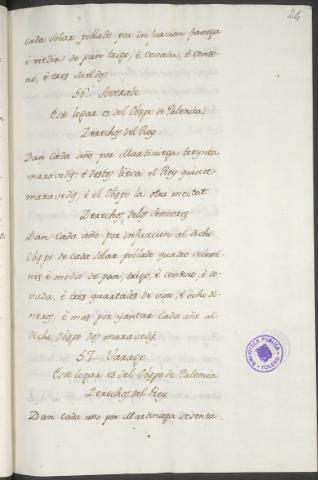 24
cada solar poblado por infurcion fanega
é media de pan trigo, é cevada, é cente-
no, é tres sueldos.
56. Soverado
Este logar es del Obispo de Palencia.
Derechos del Rey
Dan cada año por Martiniega treynta
maravedis: é destos lieva el Rey quince
maravedis, é el Obispo la otra meitat
Derechos delos Sennores
Dan cada año por infurcion al dicho
Obispo de cada solar poblado quatro celemi-
nes é medio de pan, trigo, é centeno, é ce-
vada, é tres quartales de vino, é ocho di-
neros, é mas por yantar cada año al
dicho Obispo maravedis
57. Varago
Este logar es del Obispo de Palencia
Derechos del Rey
Dan cada año por Martiniega sesenta
BIBLIOTECA PUBLICA
TOLEDO